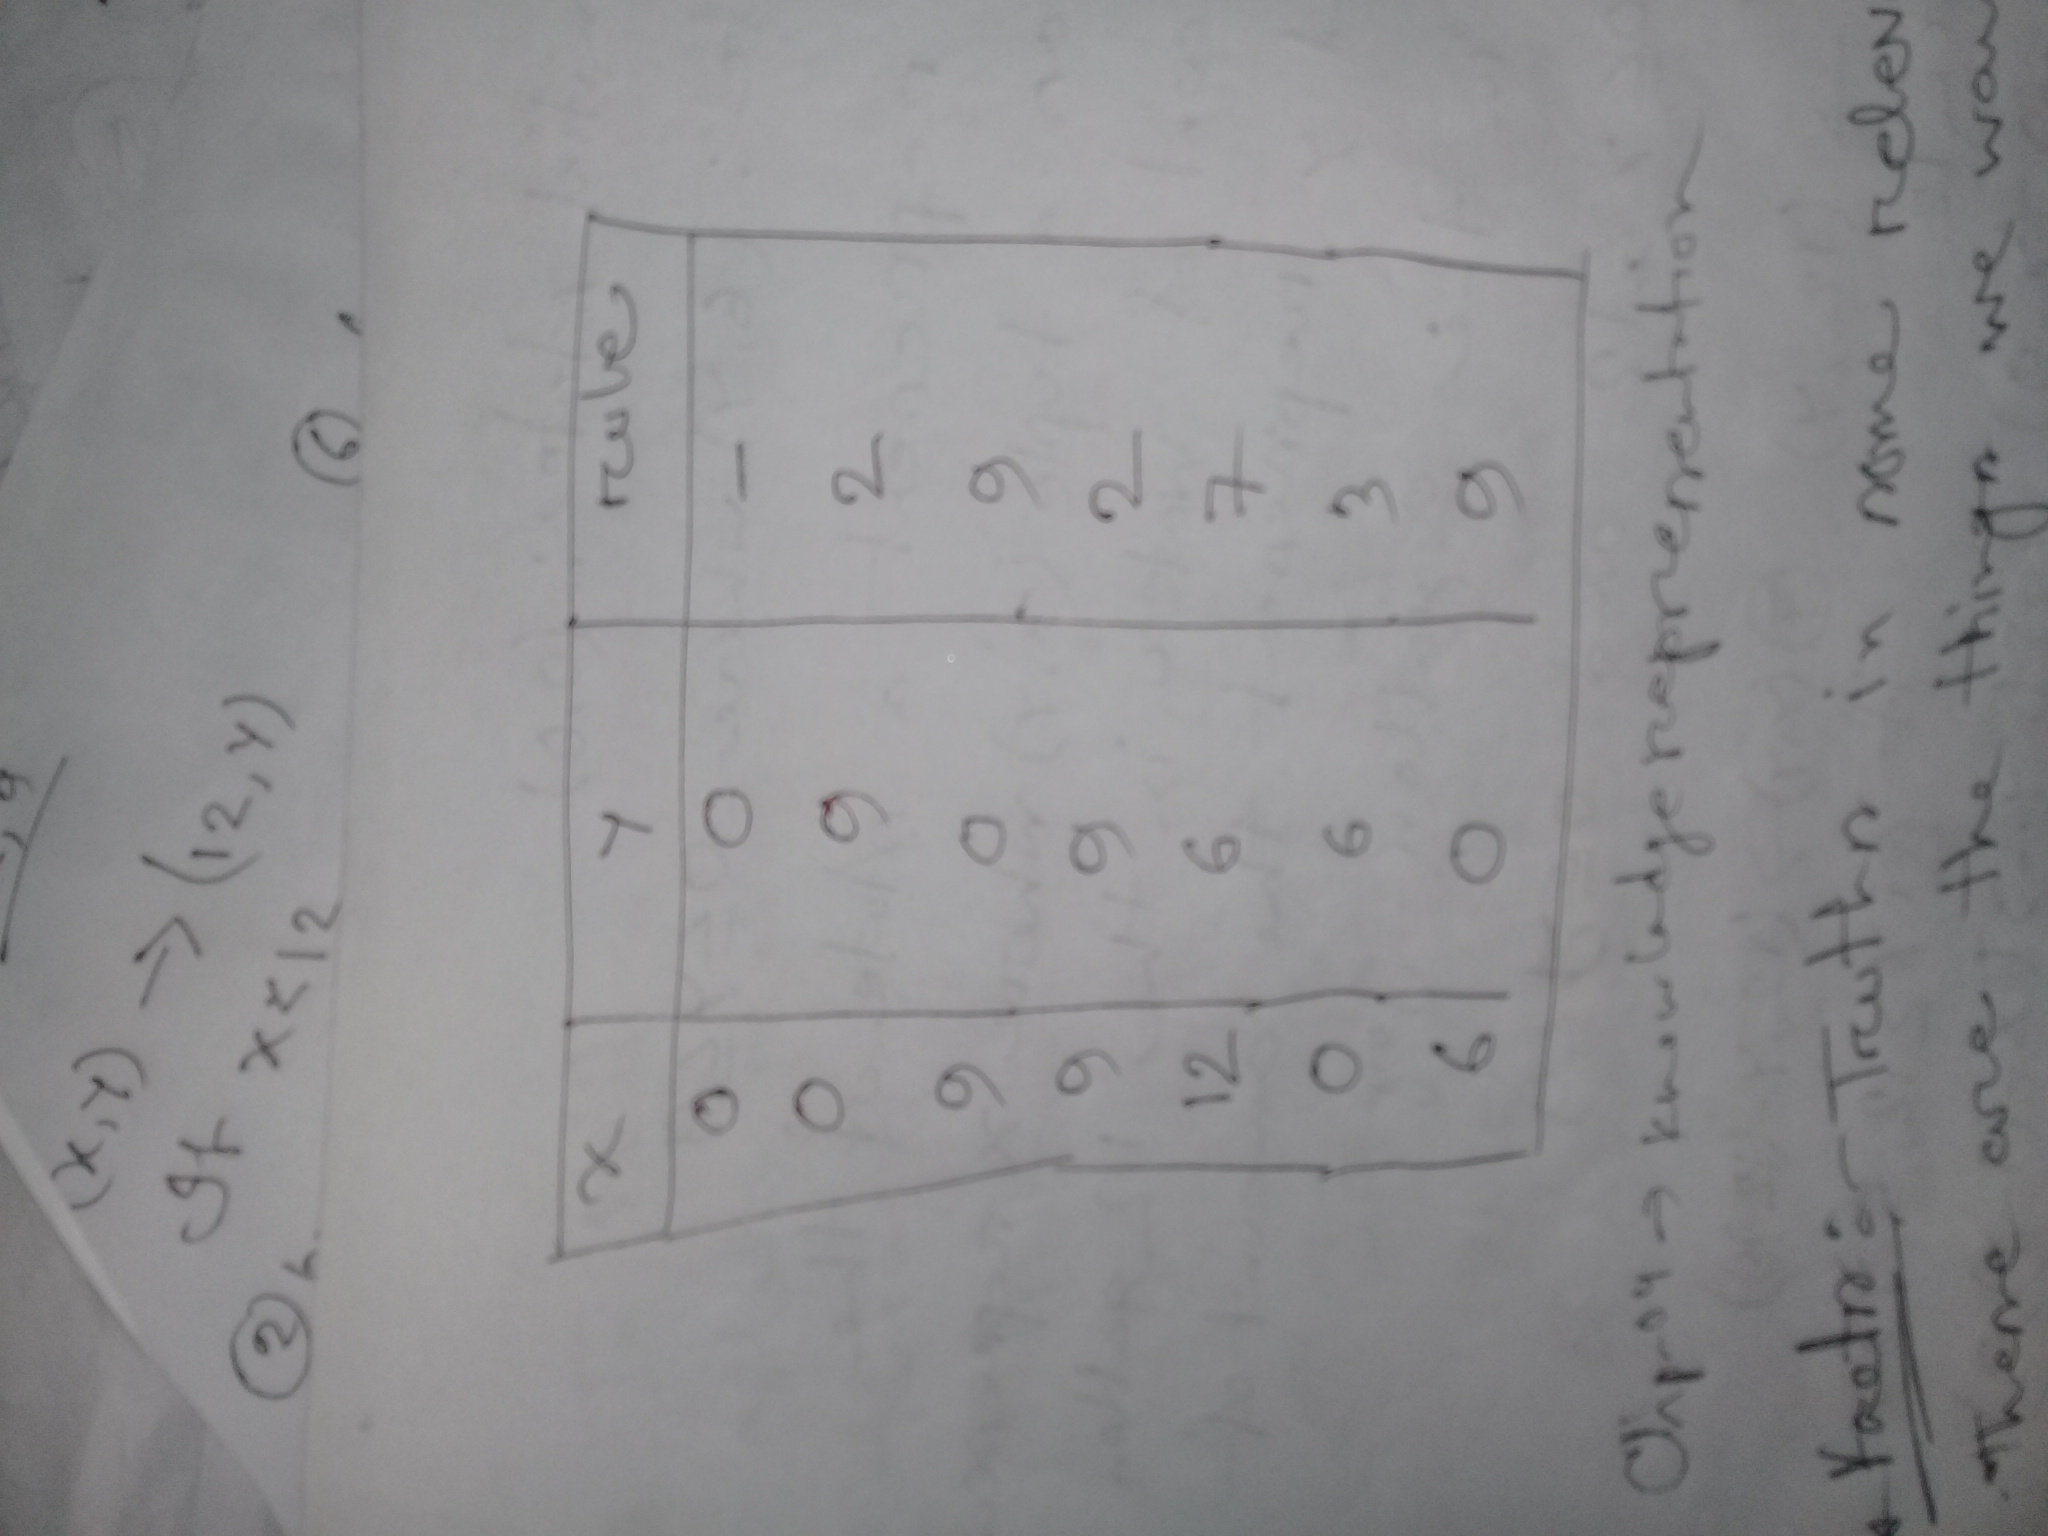 (x,y) → (12,y)
If x<12
②
⑥
x y rule
0 0 -
0 9 2
9 0 9
9 9 2
12 6 7
0 6 3
6 0 9
Chp-04 → knowladge representation
* Facts:- Truths in some relev
There are the things we wan